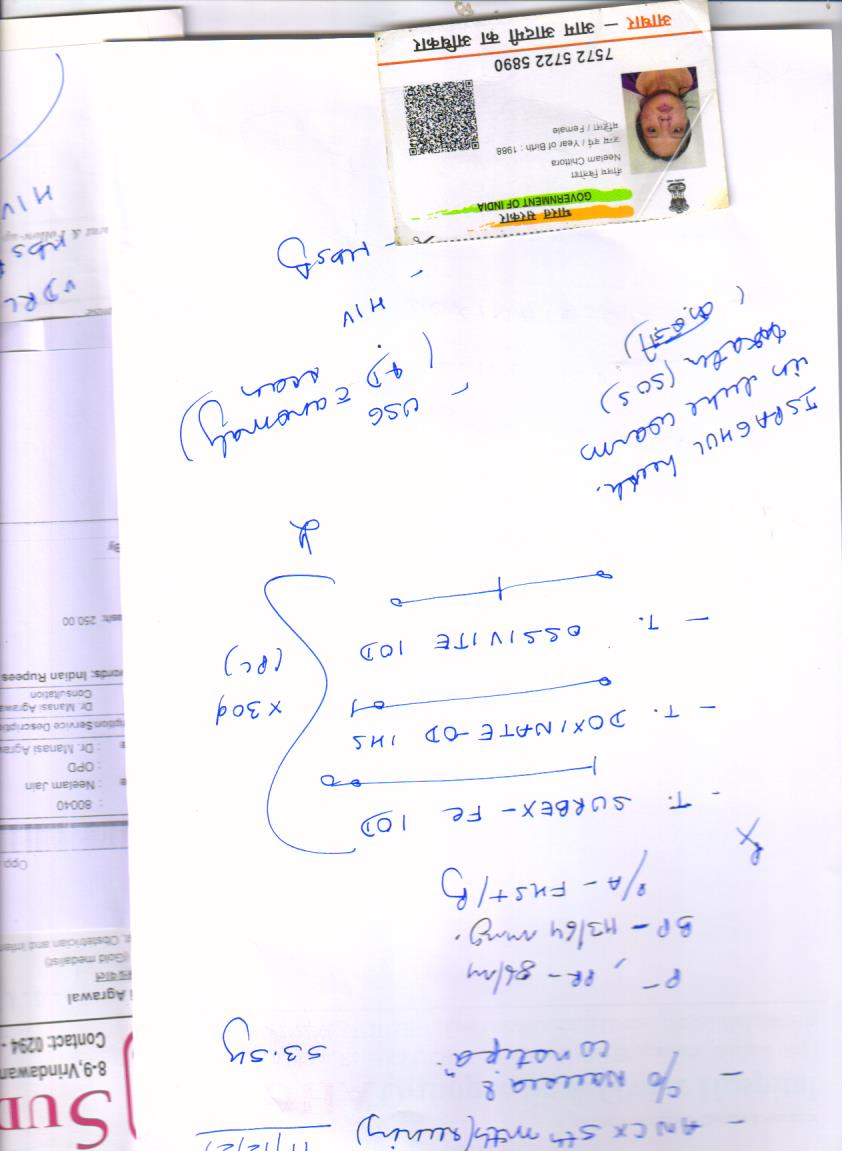 - ANC x 5th mth (running) 11/12/2
- c/o Nausea & constipan 53.5kg
P-, PR - 86/m
BP - 113/64 mmg.
P/A - FHS+/R
Rx
- T. SURBEX-Fe 1OD
- T. DOXINATE-OD 1HS
- T. OSSIVITE 1OD
x 30d
(PC)
ISPAGHUL husk
in luke warm
water (SOS)
- USG (anomaly
4D scan)
- HIV
- HbsAg
भारत सरकार
GOVERNMENT OF INDIA
नीलम चित्तोरा
Neelam Chittora
जन्म वर्ष / Year of Birth : 1988
महिला / Female
7572 5722 5890
आधार – आम आदमी का अधिकार
SUD
8-9,Vrindawan
Contact: 0294 -
i Agrawal
(Gold medalist)
, Obstetrician and Infer
Opp
: 80040
: Neelam Jain
: OPD
: Dr. Manasi Agra
ption Service Descripti
Dr. Manasi Agrawa
Consultation
words: Indian Rupees
250.00
By
VDRL
HbS
HIV
& Follow-up